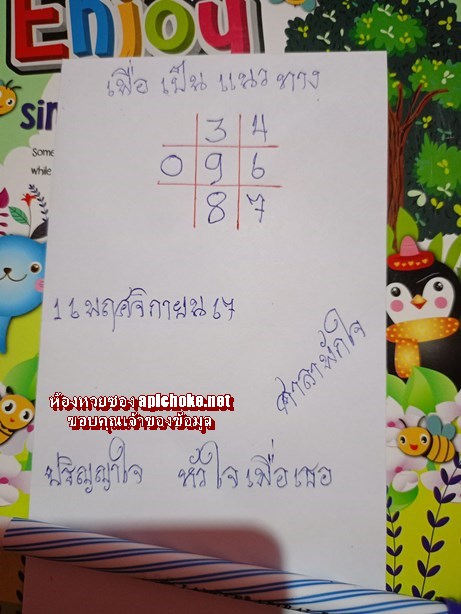 Enjoy
Some
while
เพื่อ เป็น แนว ทาง
3 4
0 9 6
8 7
16 พฤศจิกายน 67
ศาลาพักใจ
ห้องหวยซอง apichoke.net
ขอบคุณเจ้าของข้อมูล
ปริญญาใจ หัวใจเพื่อเธอ